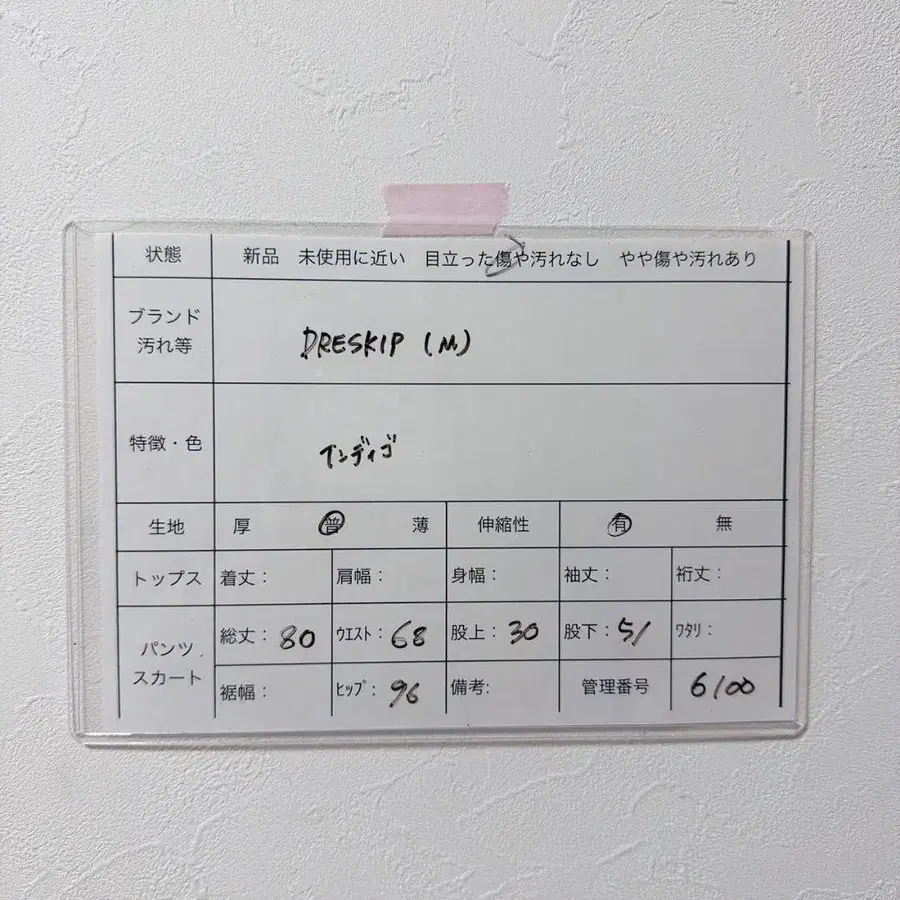 状態 新品 未使用に近い 目立った傷や汚れなし やや傷や汚れあり
ブランド
汚れ等
DRESKIP (M)
特徴・色 インディゴ
生地 厚 普 薄 伸縮性 有 無
トップス 着丈: 肩幅: 身幅: 袖丈: 裄丈:
パンツ
スカート
総丈: 80 ウエスト: 68 股上: 30 股下: 51 ワタリ:
裾幅: ヒップ: 96 備考: 管理番号 6100